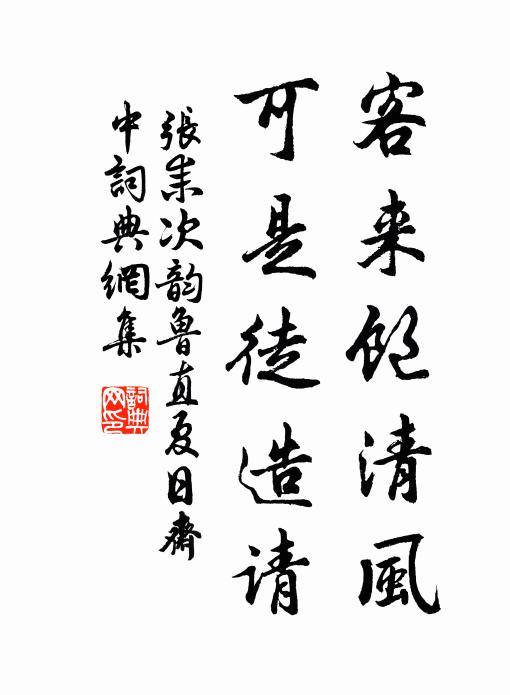 客来饱清風
可是徒造请
張耒次韵魯直夏日齋
中詞典網集
詞典
网印